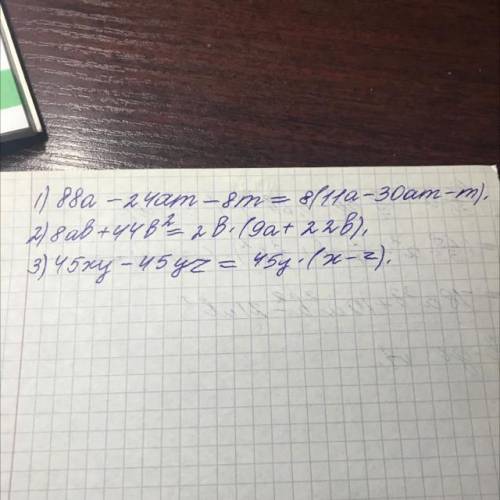 1) 88a - 24am - 8m = 8(11a - 30am - m).
2) 8ab + 44b² = 2b·(9a + 22b).
3) 45xy - 45yz = 45y·(x - z).